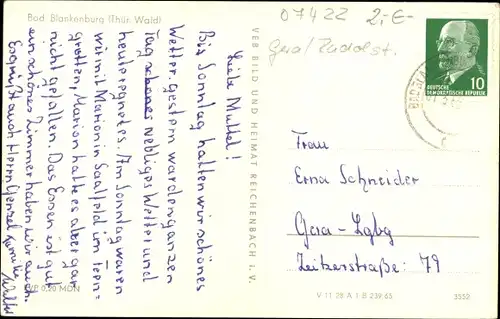 Bad Blankenburg (Thür. Wald)
07422 2,-€
Gera/Rudolst.
Liebe Muttel!
Bis Sonntag hatten wir schönes
Wetter, gestern war den ganzen
Tag schones nebliges Wetter und
heute regnet es. Am Sonntag waren
wir mit Marion in Saalfeld in Feen=
grotten, Marion hatte es aber gar
nicht gefallen. Das Essen ist gut
ein schönes Zimmer haben wir auch.
Es grüßt auch Herrn Gensel Familie
Wallt
EVP 0,20 MDN
VEB BILD UND HEIMAT REICHENBACH i. V.
DEUTSCHE
DEMOKRATISCHE REPUBLIK
10
Frau
Erna Schneider
Gera-Lgbg
Zeitzerstraße: 79
V 11 28 A 1 B 239/65
3552